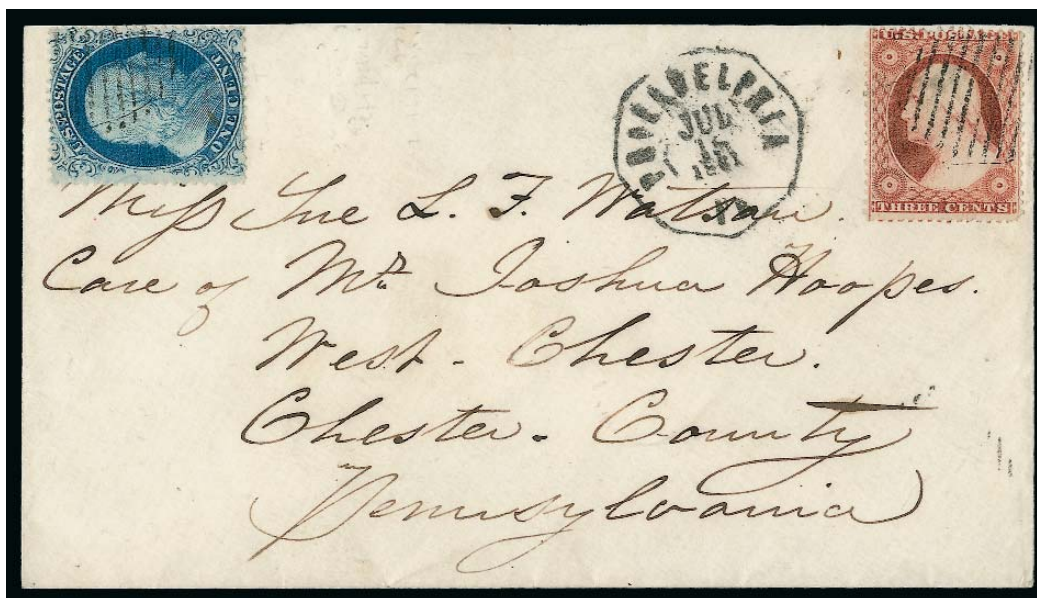 U.S. POSTAGE
ONE CENT
PHILADELPHIA
JUL
15
U.S. POSTAGE
THREE CENTS
Miss Sue L. F. Watson.
Care of Mr. Joshua Hoopes.
West. Chester.
Chester. County
Pennsylvania